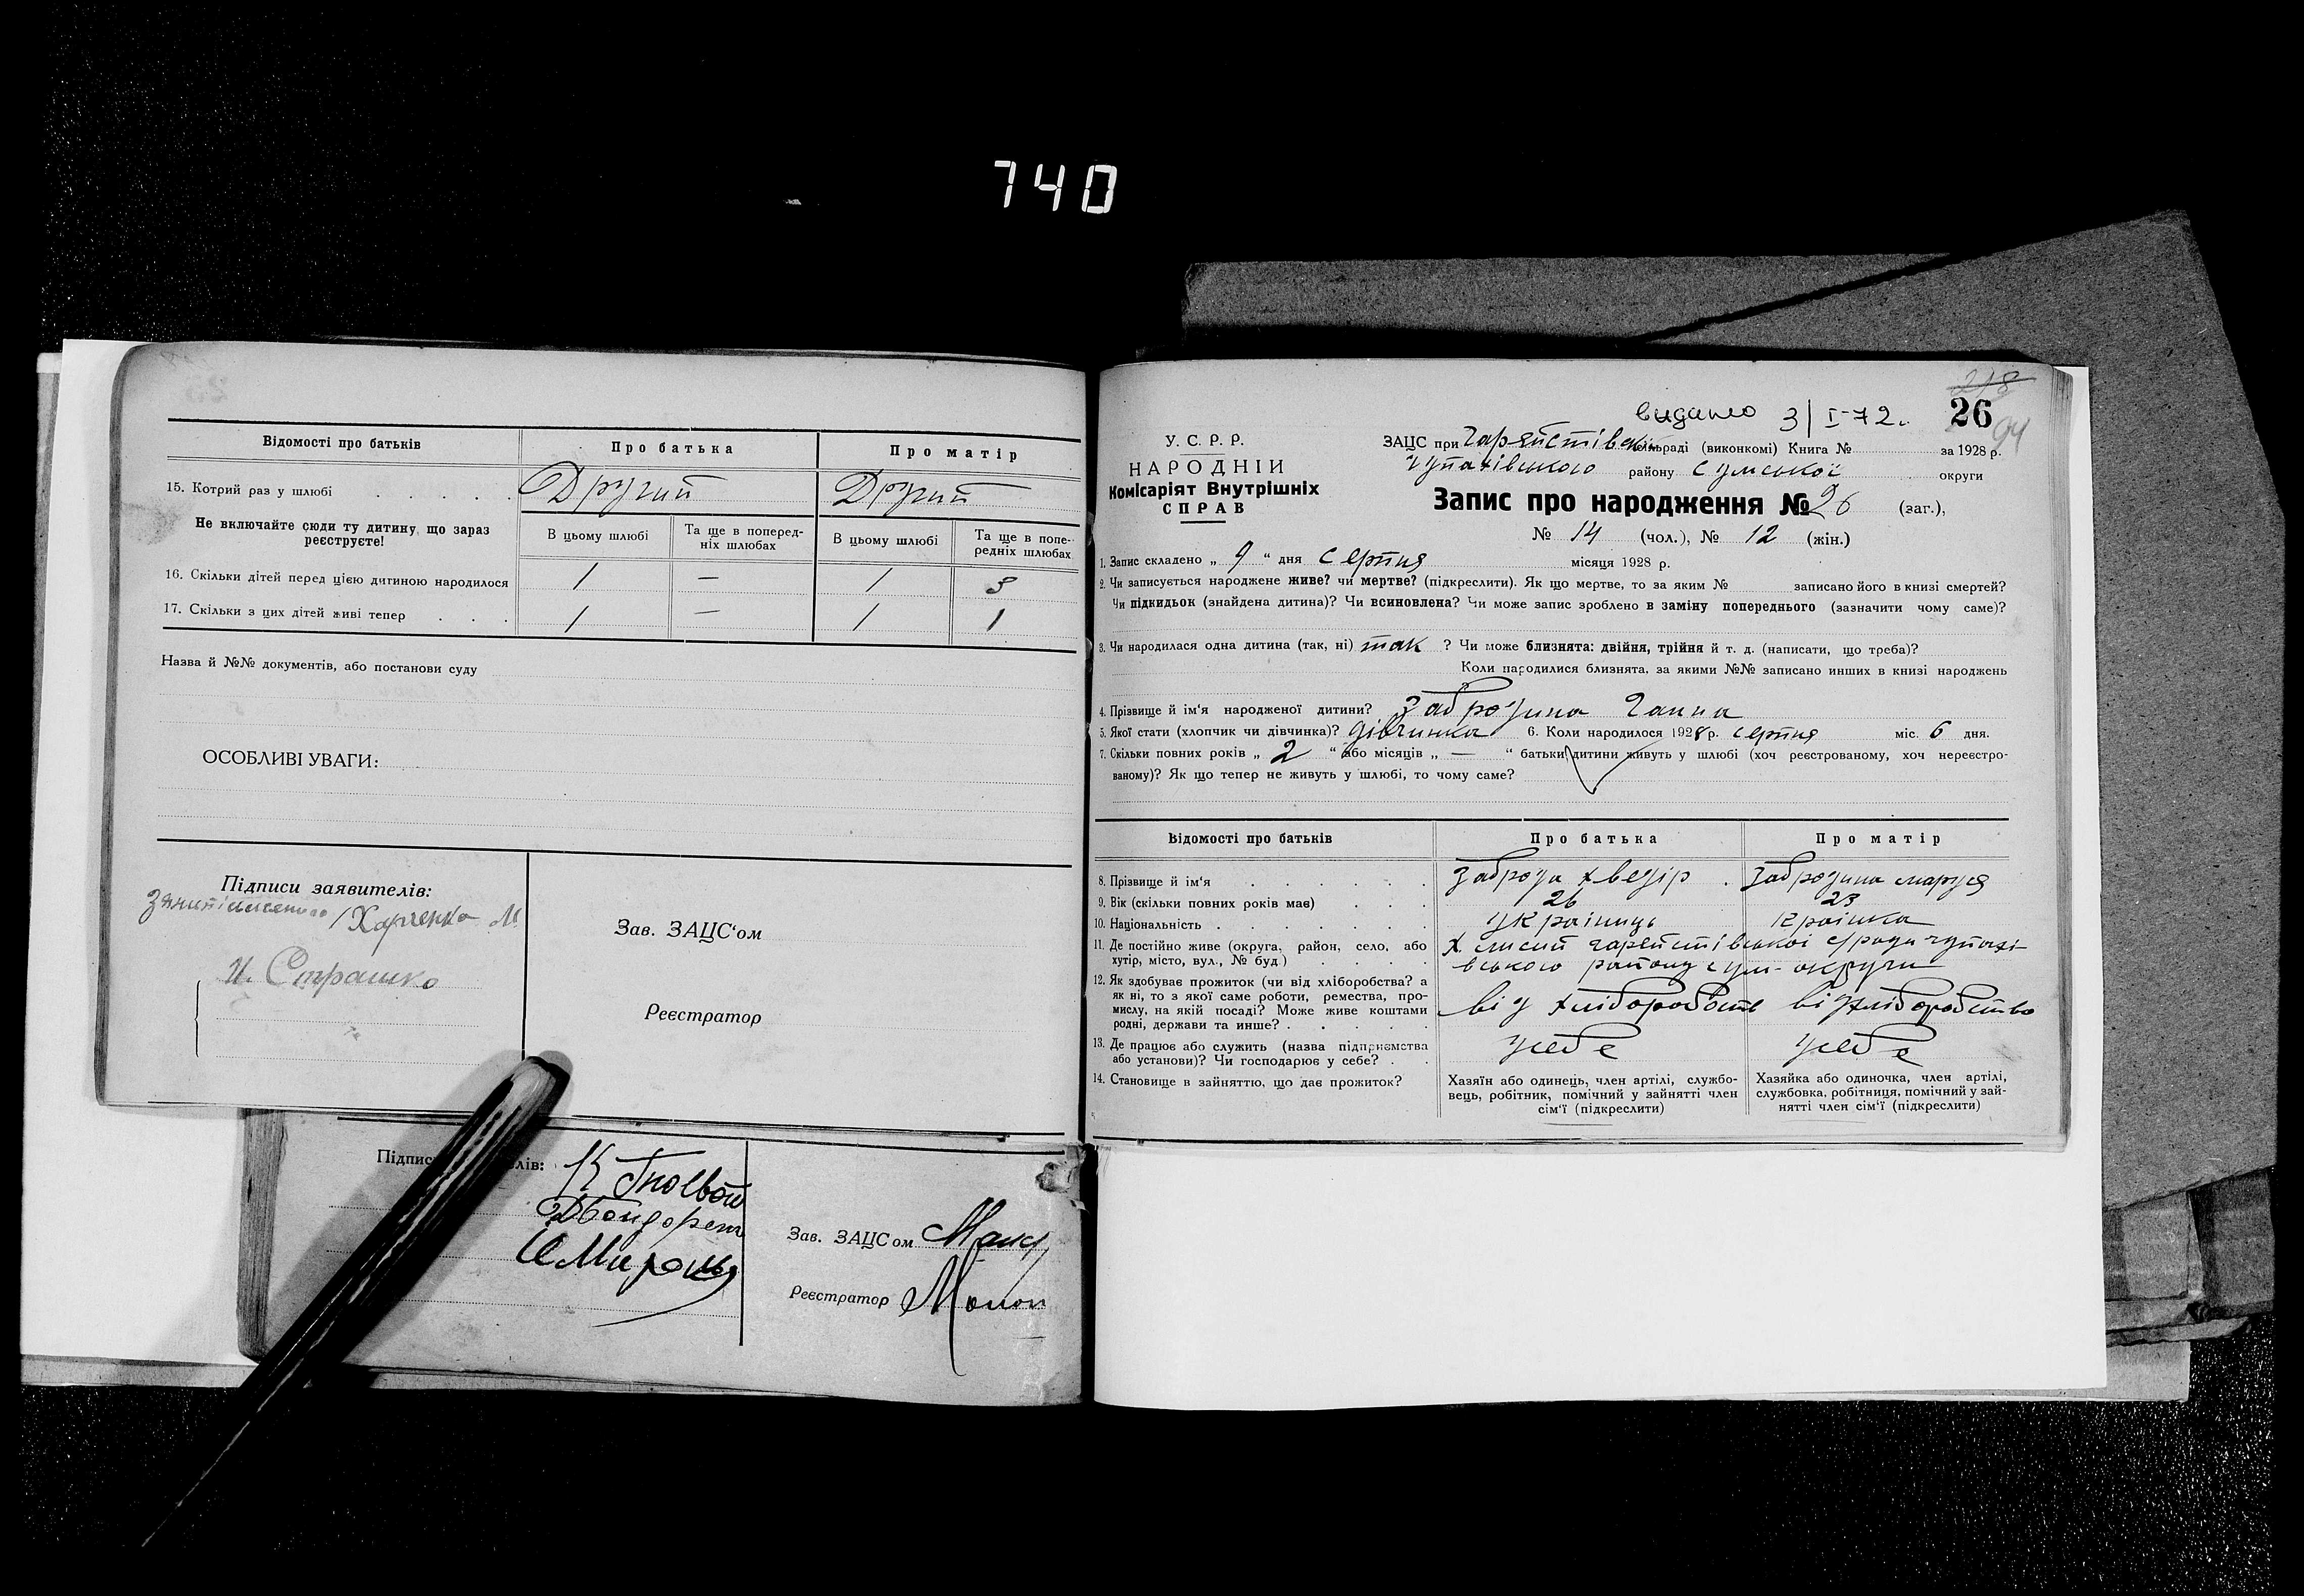 740
Відомості про батьків
Про батька
Про матір
15. Котрий раз у шлюбі
Другий
Другий
Не включайте сюди ту дитину, що зараз
реєструєте!
В цьому шлюбі
Та ще в поперед-
ніх шлюбах
В цьому шлюбі
Та ще в попе-
редніх шлюбах
16. Скільки дітей перед цією дитиною народилося
1
—
1
3
17. Скільки з цих дітей живі тепер
1
—
1
1
Назва й №№ документів, або постанови суду
ОСОБЛИВІ УВАГИ:
Підписи заявителів:
/Харченко М
И. Страшко
Зав. ЗАЦС'ом
Реєстратор
Зав. ЗАЦСом
Реєстратор
видано 3/I-72.
26
94
У. С. Р. Р.
НАРОДНІЙ
Комісаріят Внутрішніх
СПРАВ
ЗАЦС при сельраді (виконкомі) Книга № за 1928 р.
чупахівського району сумської округи
Запис про народження № 26 (заг.),
№ 14 (чол.), № 12 (жін.)
1. Запис складено „ 9 “ дня серпня місяця 1928 р.
2. Чи записується народжене живе? чи мертве? (підкреслити). Як що мертве, то за яким № записано його в книзі смертей?
Чи підкидьок (знайдена дитина)? Чи всиновлена? Чи може запис зроблено в заміну попереднього (зазначити чому саме)?
3. Чи народилася одна дитина (так, ні) так ? Чи може близнята: двійня, трійня й т. д. (написати, що треба)?
Коли народилися близнята, за якими №№ записано инших в книзі народжень
?
4. Прізвище й ім'я народженої дитини? Забродина Ганна
5. Якої стати (хлопчик чи дівчинка)? дівчинка 6. Коли народилося 1928 р. серпня міс. 6 дня.
7. Скільки повних років „ 2 “ або місяців „ — “ батьки дитини живуть у шлюбі (хоч реєстрованому, хоч нереєстро-
ваному)? Як що тепер не живуть у шлюбі, то чому саме?
Відомості про батьків
Про батька
Про матір
8. Прізвище й ім'я
Заброда Хведір
Забродина маруся
9. Вік (скільки повних років має)
26
23
10. Національність
україниць
країнка
11. Де постійно живе (округа, район, село, або
хутір, місто, вул., № буд.)
х лисий гарпистівської с/ради чупахі-
вського району сум- округи
12. Як здобуває прожиток (чи від хліборобства? а
як ні, то з якої саме роботи, ремества, про-
мислу, на якій посаді? Може живе коштами
родні, держави та инше?
від хліборобств
від хліборобство
13. Де працює або служить (назва підприємства
або установи)? Чи господарює у себе?
усебе
усебе
14. Становище в зайняттю, що дає прожиток?
Хазяїн або одинець, член артілі, службо-
вець, робітник, помічний у зайнятті член
сім'ї (підкреслити)
Хазяйка або одиночка, член артілі,
службовка, робітниця, помічний у зай-
нятті член сім'ї (підкреслити)